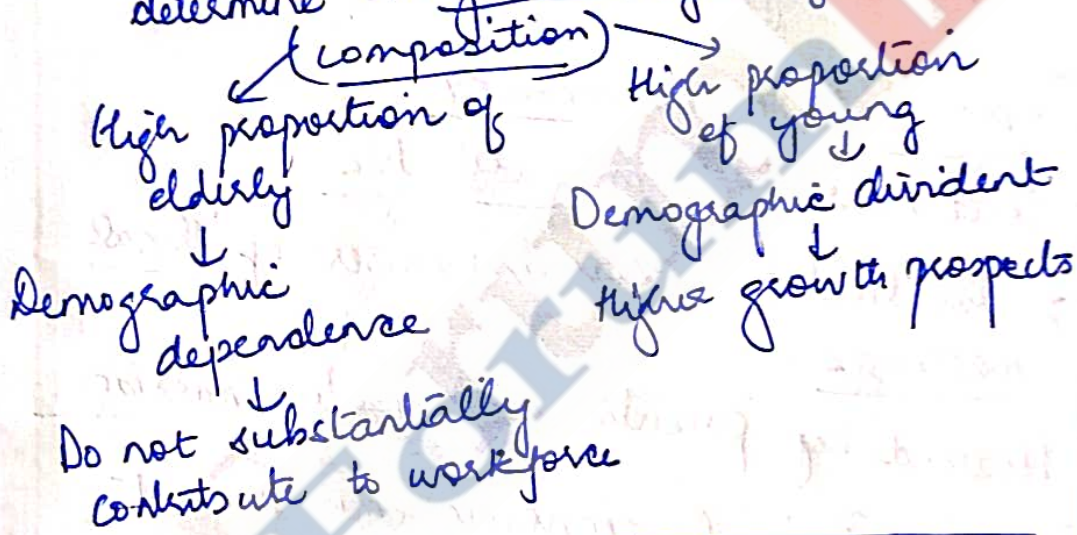 determine
(composition)
High proportion of
elderly
↓
Demographic
dependence
↓
Do not substantially
contribute to workforce
High proportion
of young
↓
Demographic divident
↓
Higher growth prospects
Forum